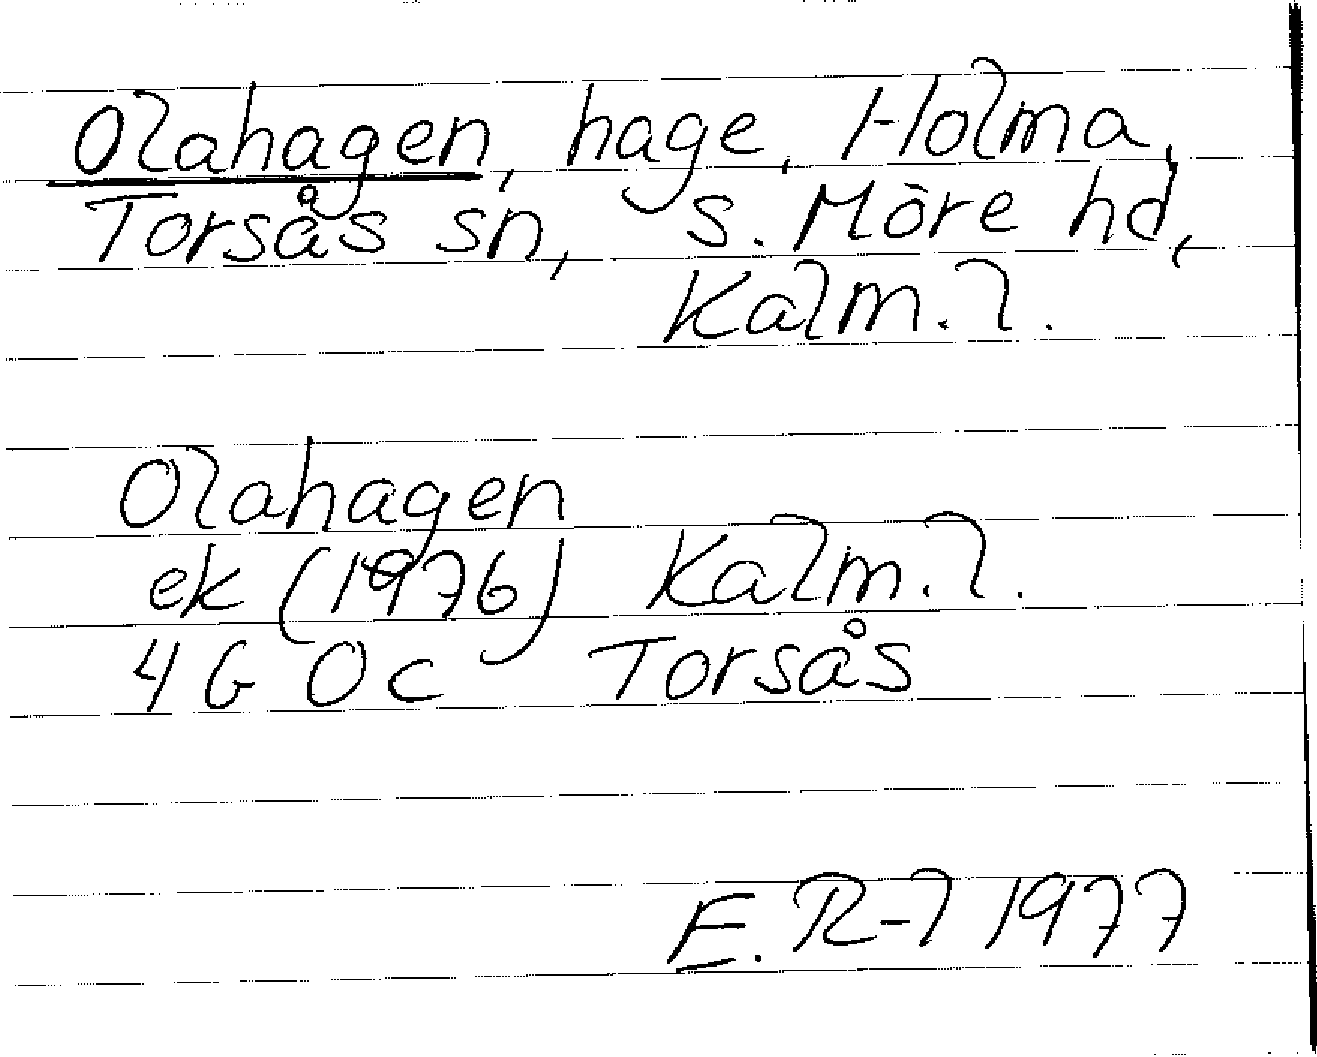 Olahagen, hage, Holma,
Torsås sn, S. Möre hd,
Kalm. l.
Olahagen
ek (1976) Kalm. l.
4G 0c Torsås
E. R-l 1977